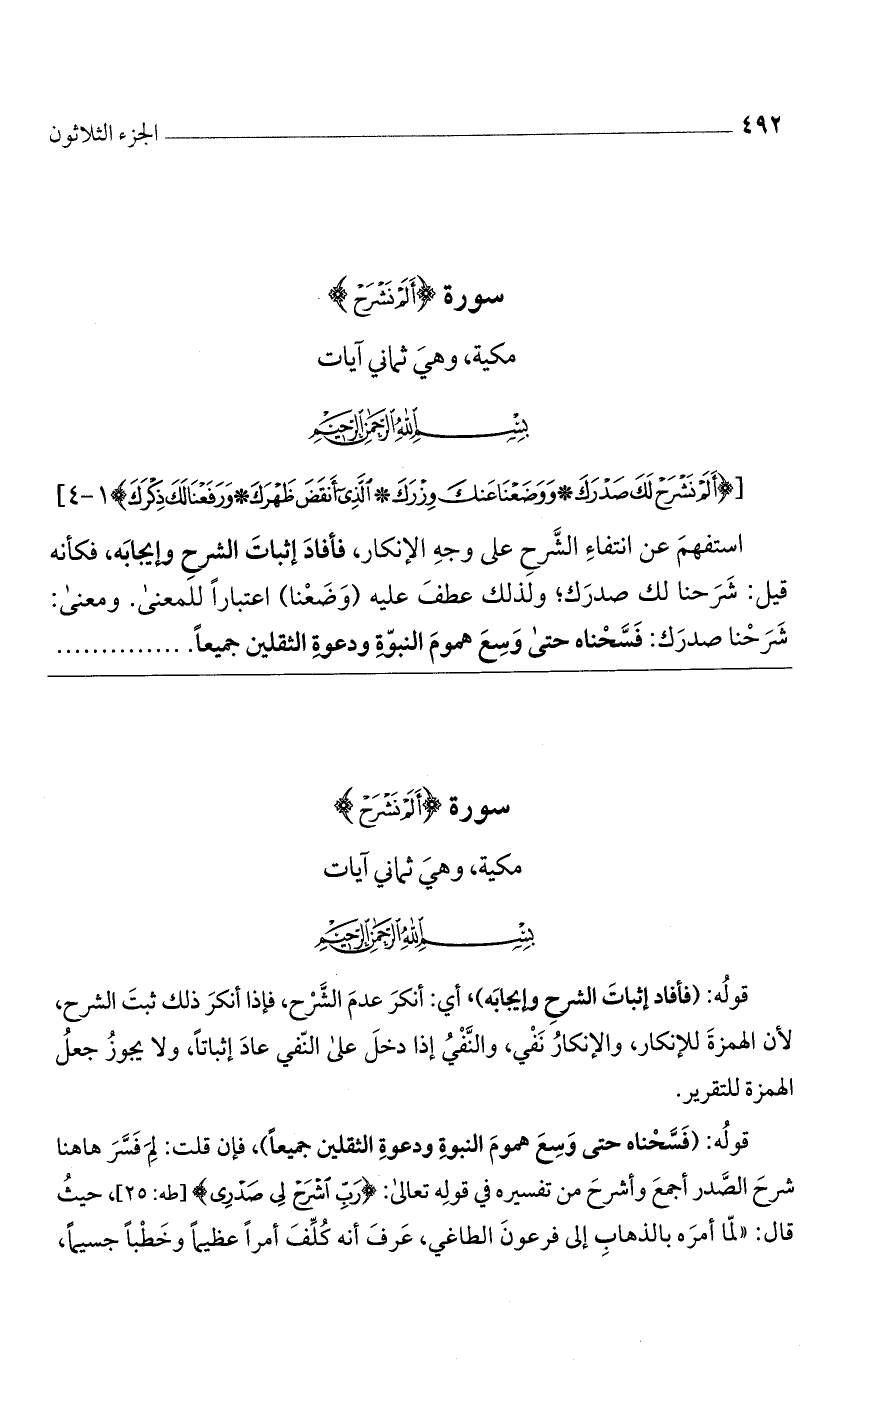 ٤٩٢ الجزء الثلاثون
سورة ﴿أَلَمْ نَشْرَحْ﴾
مكية، وهيَ ثماني آيات
بِسْمِ ٱللَّهِ ٱلرَّحْمَٰنِ ٱلرَّحِيمِ
[﴿أَلَمْ نَشْرَحْ لَكَ صَدْرَكَ * وَوَضَعْنَا عَنكَ وِزْرَكَ * ٱلَّذِىٓ أَنقَضَ ظَهْرَكَ * وَرَفَعْنَا لَكَ ذِكْرَكَ﴾ ١-٤]
استفهمَ عن انتفاءِ الشَّرحِ على وجهِ الإنكار، فأفادَ إثباتَ الشرحِ وإيجابَه، فكأنه
قيل: شَرَحنا لك صدرَك؛ ولذلك عطفَ عليه (وَضَعْنا) اعتباراً للمعنىٰ. ومعنىٰ:
شَرَحْنا صدرَك: فَسَّحْناه حتىٰ وَسِعَ همومَ النبوّةِ ودعوةِ الثقلين جميعاً. ..............
سورة ﴿أَلَمْ نَشْرَحْ﴾
مكية، وهيَ ثماني آيات
بِسْمِ ٱللَّهِ ٱلرَّحْمَٰنِ ٱلرَّحِيمِ
قولُه: (فأفاد إثباتَ الشرحِ وإيجابَه)، أي: أنكرَ عدمَ الشَّرْح، فإذا أنكرَ ذلك ثبتَ الشرح،
لأن الهمزةَ للإنكار، والإنكارُ نَفْي، والنَّفْيُ إذا دخلَ علىٰ النّفي عادَ إثباتاً، ولا يجوزُ جعلُ
الهمزة للتقرير.
قولُه: (فَسَّحْناه حتى وَسِعَ همومَ النبوةِ ودعوةِ الثقلين جميعاً)، فإن قلت: لِمَ فَسَّرَ هاهنا
شرحَ الصَّدر أجمعَ وأشرحَ من تفسيره في قولِه تعالىٰ: ﴿رَبِّ ٱشْرَحْ لِى صَدْرِى﴾ [طه: ٢٥]، حيثُ
قال: «لمّا أمرَه بالذهابِ إلى فرعونَ الطاغي، عَرفَ أنه كُلِّفَ أمراً عظيماً وخَطْباً جسيماً،